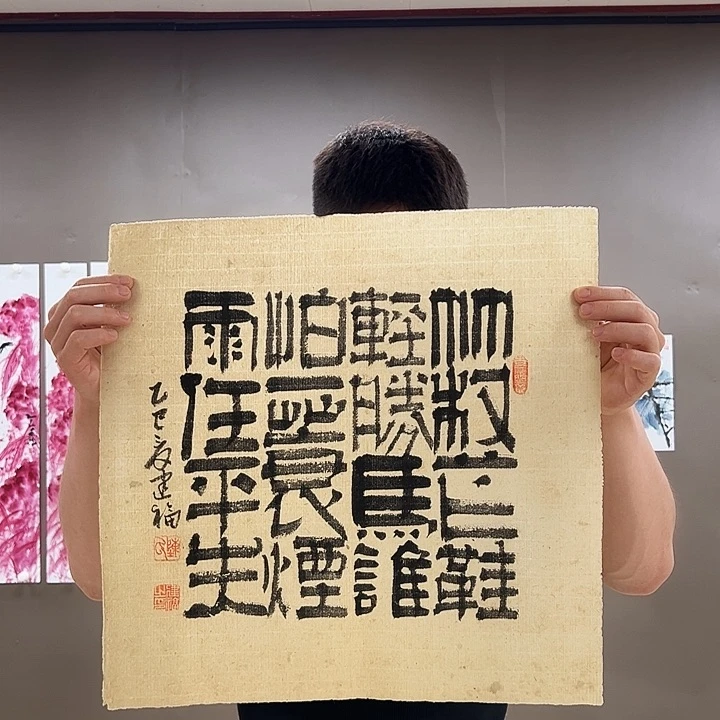 竹杖芒鞋
輕勝馬誰
怕一蓑煙
雨任平生
乙巳夏建福